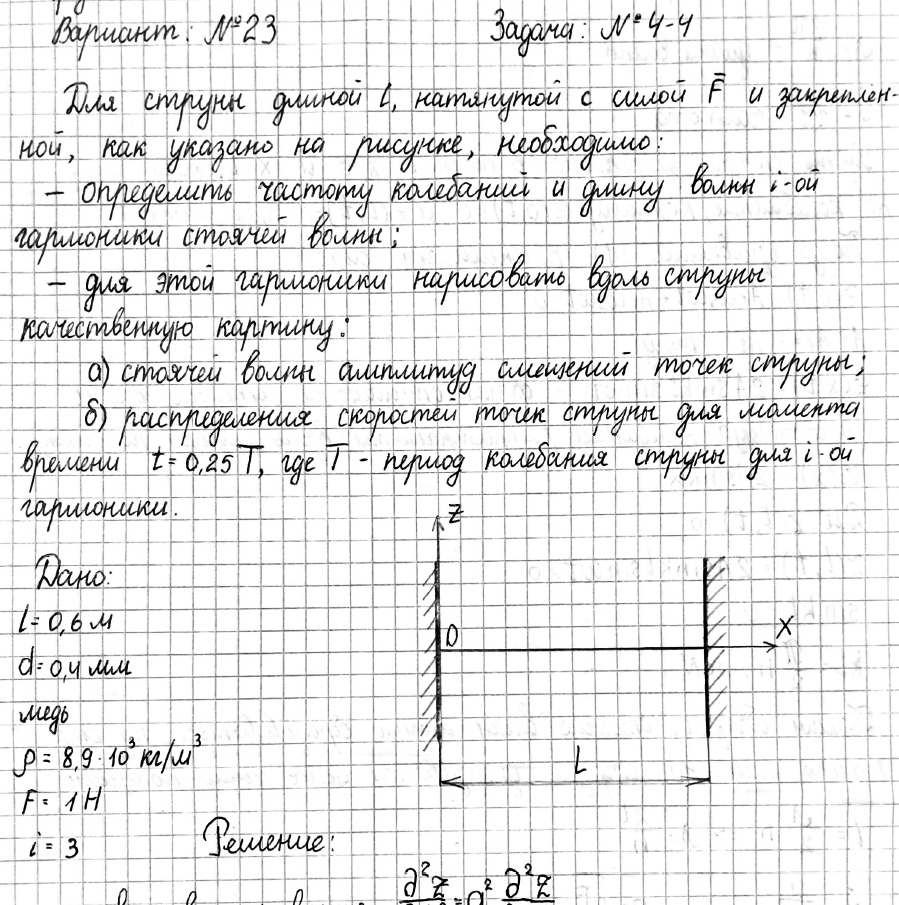 Вариант: №23
Задача: №4-4
Для струны длиной l, натянутой с силой F̄ и закреплен-
ной, как указано на рисунке, необходимо:
– определить частоту колебаний и длину волны i-ой
гармоники стоячей волны;
– для этой гармоники нарисовать вдоль струны
качественную картину:
а) стоячей волны амплитуд смещений точек струны;
б) распределения скоростей точек струны для момента
времени t=0,25 T, где T - период колебания струны для i-ой
гармоники.
Z
Дано:
l=0,6 м
0
X
d=0,4 мм
медь
ρ=8,9·10³ кг/м³
L
F= 1 Н
i=3
Решение:
∂²Z
∂²Z